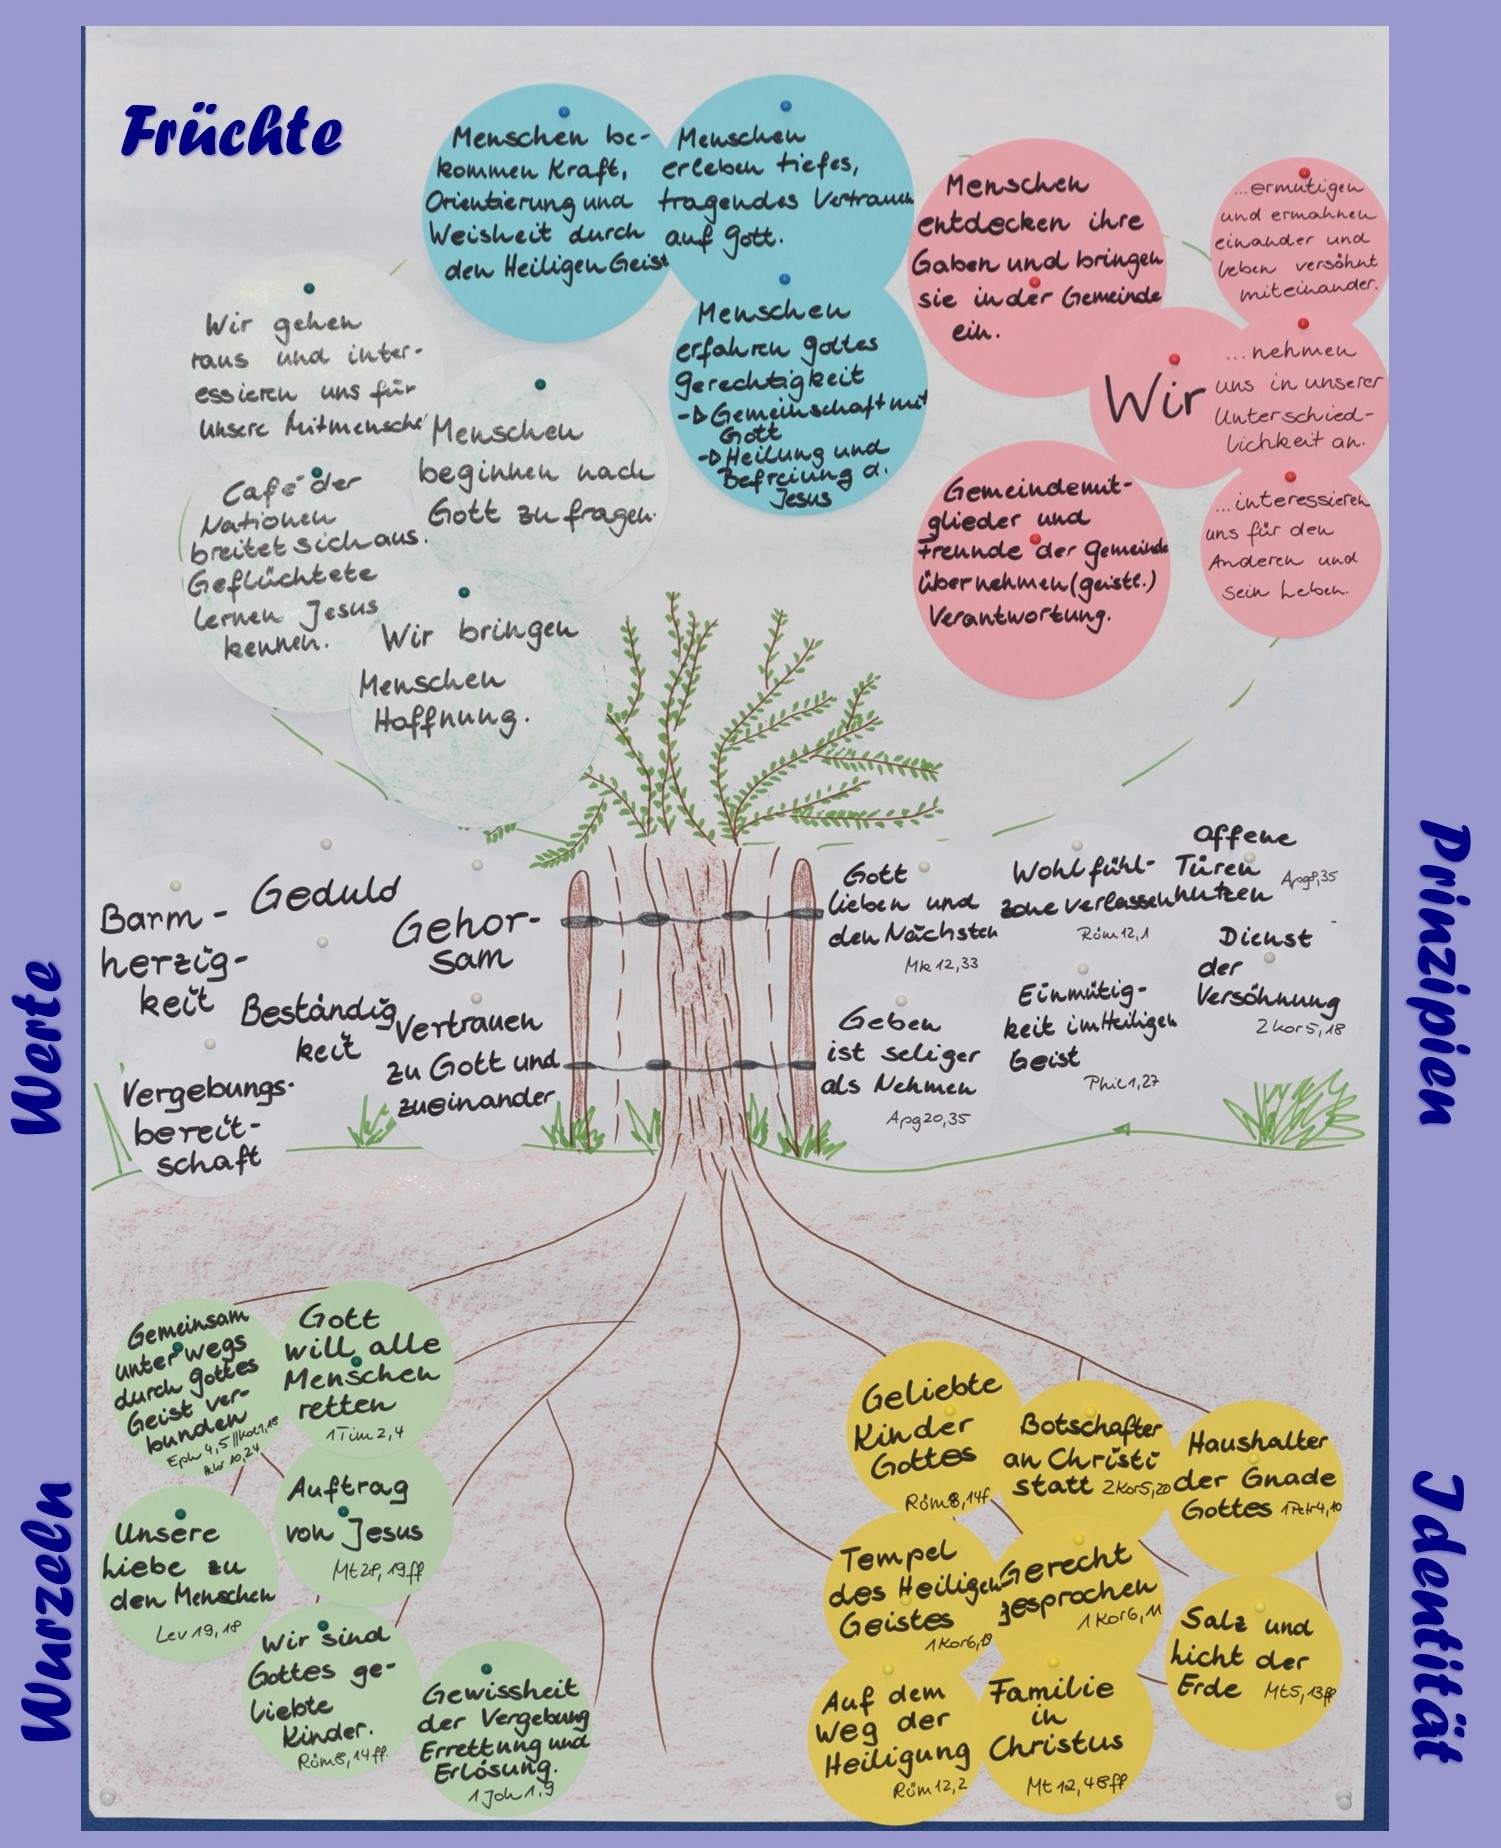 Früchte
Menschen be-
kommen Kraft,
Orientierung und
Weisheit durch
den Heiligen Geist
Menschen
erleben tiefes,
tragendes Vertrauen
auf Gott.
Menschen
erfahren Gottes
Gerechtigkeit
→ Gemeinschaft mit
Gott
→ Heilung und
Befreiung d.
Jesus
Menschen
entdecken ihre
Gaben und bringen
sie in der Gemeinde
ein.
Wir
...ermutigen
und ermahnen
einander und
leben versöhnt
miteinander.
...nehmen
uns in unserer
Unterschied-
lichkeit an.
...interessieren
uns für den
Anderen und
sein Leben.
Gemeindemit-
glieder und
Freunde der Gemeinde
übernehmen (geistl.)
Verantwortung.
Wir gehen
raus und inter-
essieren uns für
unsere Mitmensche
Menschen
beginnen nach
Gott zu fragen.
Café der
Nationen
breitet sich aus.
Geflüchtete
lernen Jesus
kennen.
Wir bringen
Menschen
Hoffnung.
Werte
Barm-
herzig-
keit
Geduld
Gehor-
sam
Beständig
keit
Vertrauen
zu Gott und
zueinander
Vergebungs-
bereit-
schaft
Prinzipien
Gott
lieben und
den Nächsten
Mk 12,33
Wohlfühl-
zone verlassen
Röm 12,1
Offene
Türen
nutzen
Apg 8,35
Geben
ist seliger
als Nehmen
Apg 20,35
Einmütig-
keit im Heiligen
Geist
Phil 1,27
Dienst
der
Versöhnung
2 Kor 5,18
Wurzeln
Gemeinsam
unterwegs
durch Gottes
Geist ver-
bunden
Eph 4,5 // Kol 1,18
Hebr 10,24
Gott
will alle
Menschen
retten
1 Tim 2,4
Auftrag
von Jesus
Mt 28,19ff
Unsere
Liebe zu
den Menschen
Lev 19,18
Wir sind
Gottes ge-
liebte
Kinder.
Röm 8,14ff.
Gewissheit
der Vergebung
Errettung und
Erlösung.
1 Joh 1,9
Identität
Geliebte
Kinder
Gottes
Röm 8,14f
Botschafter
an Christi
statt 2 Kor 5,20
Haushalter
der Gnade
Gottes 1 Petr 4,10
Tempel
des Heiligen
Geistes
1 Kor 6,19
Gerecht
gesprochen
1 Kor 6,11
Salz und
Licht der
Erde Mt 5,13ff
Auf dem
Weg der
Heiligung
Röm 12,2
Familie
in
Christus
Mt 12,48ff